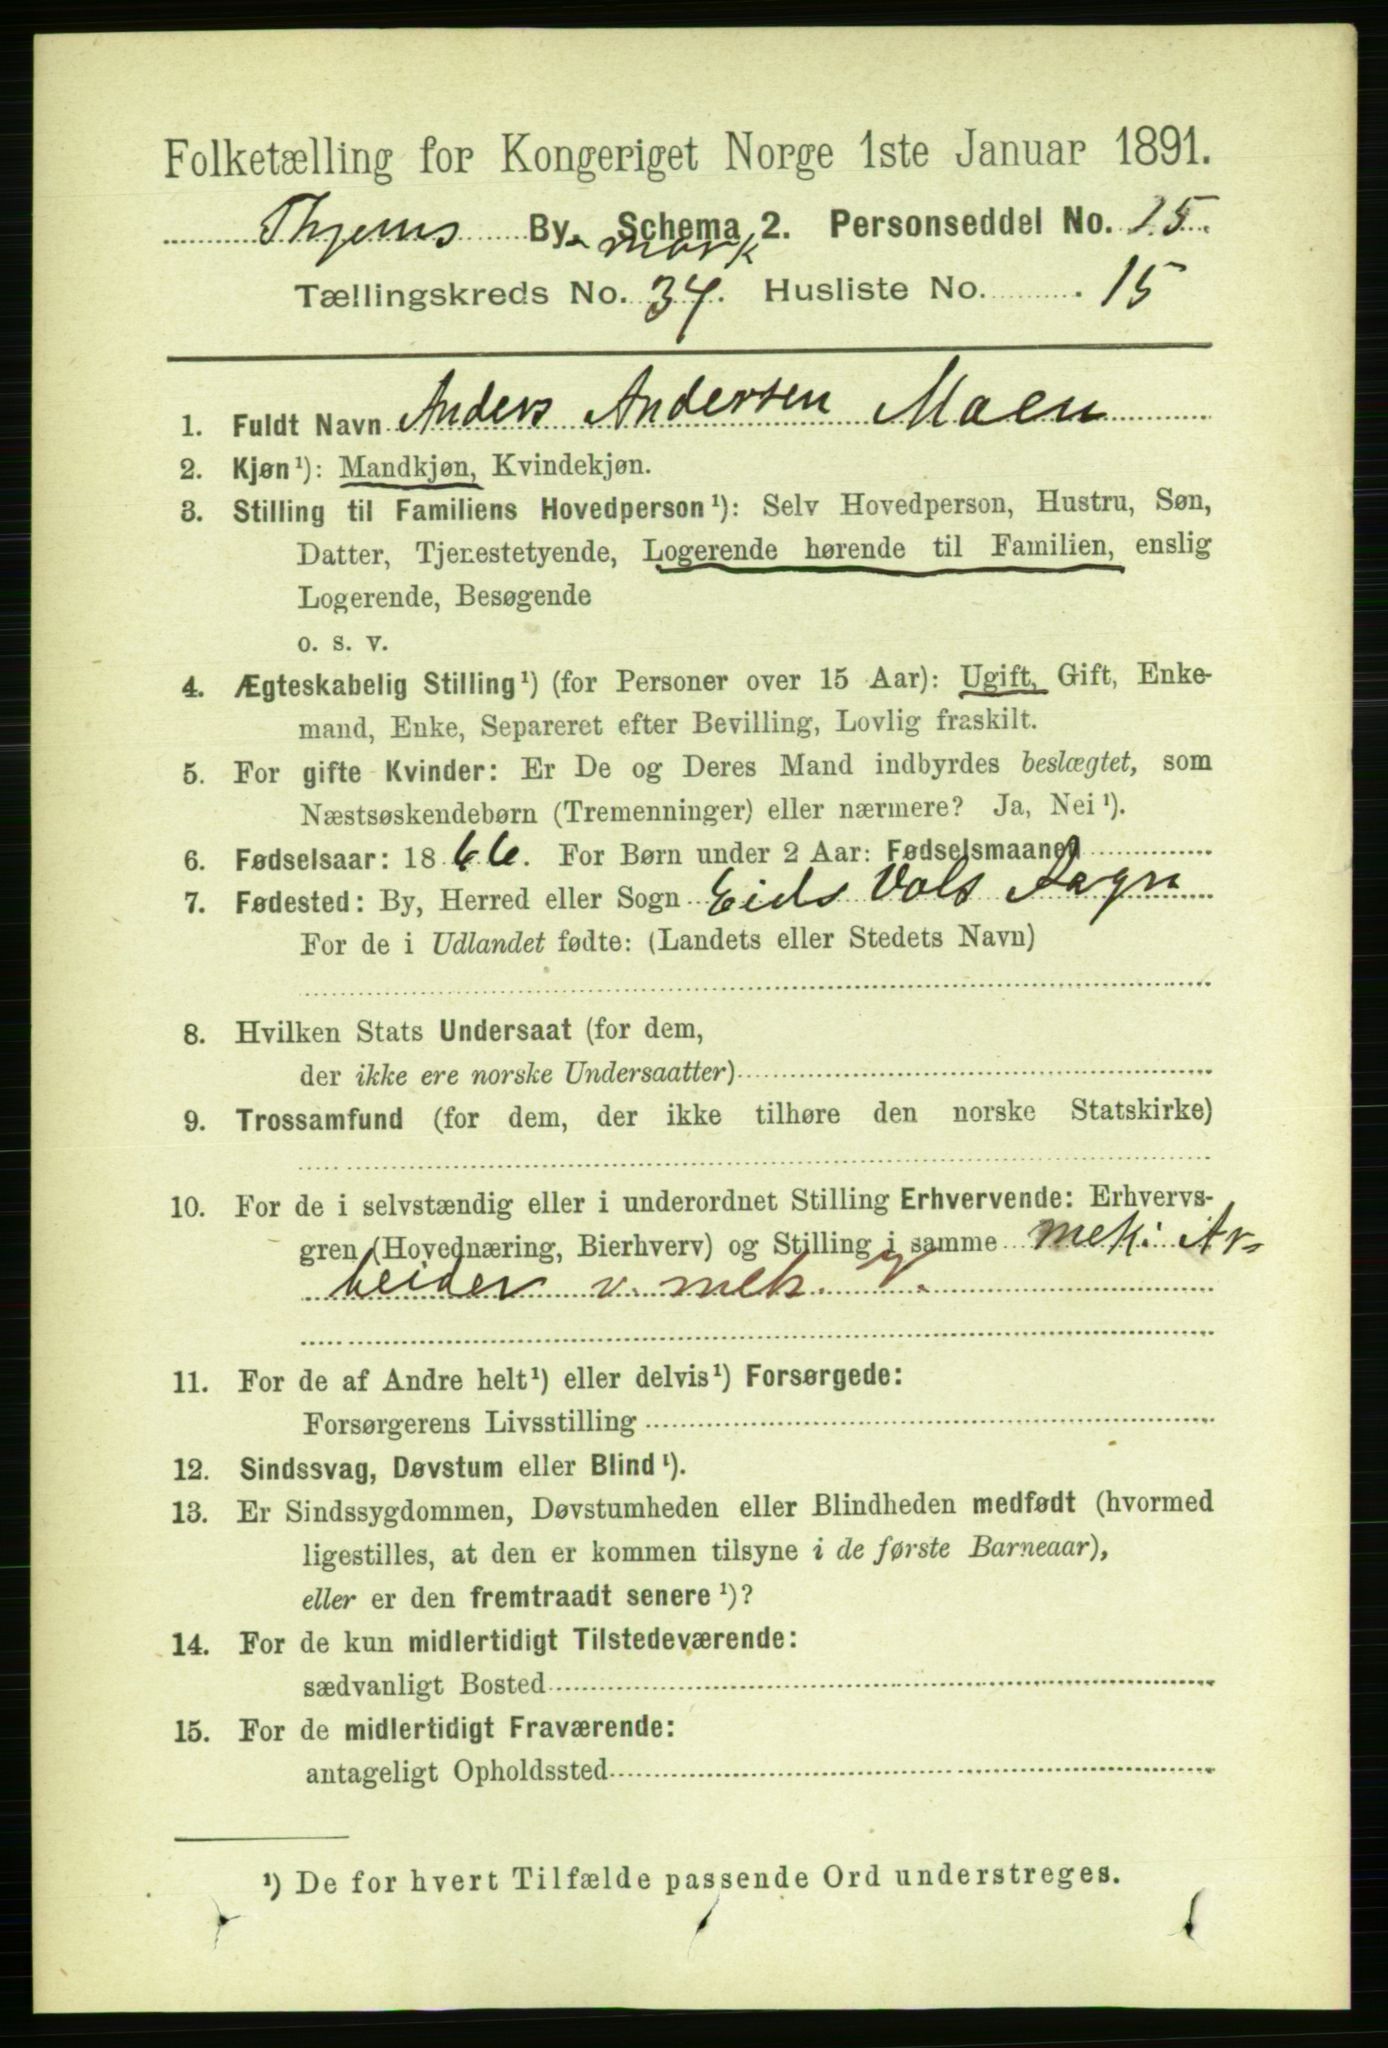 Folketælling for Kongeriget Norge 1ste Januar 1891.
Thjems By. Schema 2. Personseddel No. 15.
mork
Tællingskreds No. 34. Husliste No. 15
1. Fuldt Navn Anders Andersen Moen
2. Kjøn¹): Mandkjøn, Kvindekjøn.
3. Stilling til Familiens Hovedperson¹): Selv Hovedperson, Hustru, Søn,
Datter, Tjenestetyende, Logerende hørende til Familien, enslig
Logerende, Besøgende
o. s. v.
4. Ægteskabelig Stilling¹) (for Personer over 15 Aar): Ugift, Gift, Enke-
mand, Enke, Separeret efter Bevilling, Lovlig fraskilt.
5. For gifte Kvinder: Er De og Deres Mand indbyrdes beslægtet, som
Næstsøskendebørn (Tremenninger) eller nærmere? Ja, Nei¹).
6. Fødselsaar: 1866. For Børn under 2 Aar: Fødselsmaaned
7. Fødested: By, Herred eller Sogn Eids Vols Sogn
For de i Udlandet fødte: (Landets eller Stedets Navn)
8. Hvilken Stats Undersaat (for dem,
der ikke ere norske Undersaatter)
9. Trossamfund (for dem, der ikke tilhøre den norske Statskirke)
10. For de i selvstændig eller i underordnet Stilling Erhvervende: Erhvervs-
gren (Hovednæring, Bierhverv) og Stilling i samme mek: Ar-
beider v. mek. V.
11. For de af Andre helt¹) eller delvis¹) Forsørgede:
Forsørgerens Livsstilling
12. Sindssvag, Døvstum eller Blind¹).
13. Er Sindssygdommen, Døvstumheden eller Blindheden medfødt (hvormed
ligestilles, at den er kommen tilsyne i de første Barneaar),
eller er den fremtraadt senere¹)?
14. For de kun midlertidigt Tilstedeværende:
sædvanligt Bosted
15. For de midlertidigt Fraværende:
antageligt Opholdssted
¹) De for hvert Tilfælde passende Ord understreges.